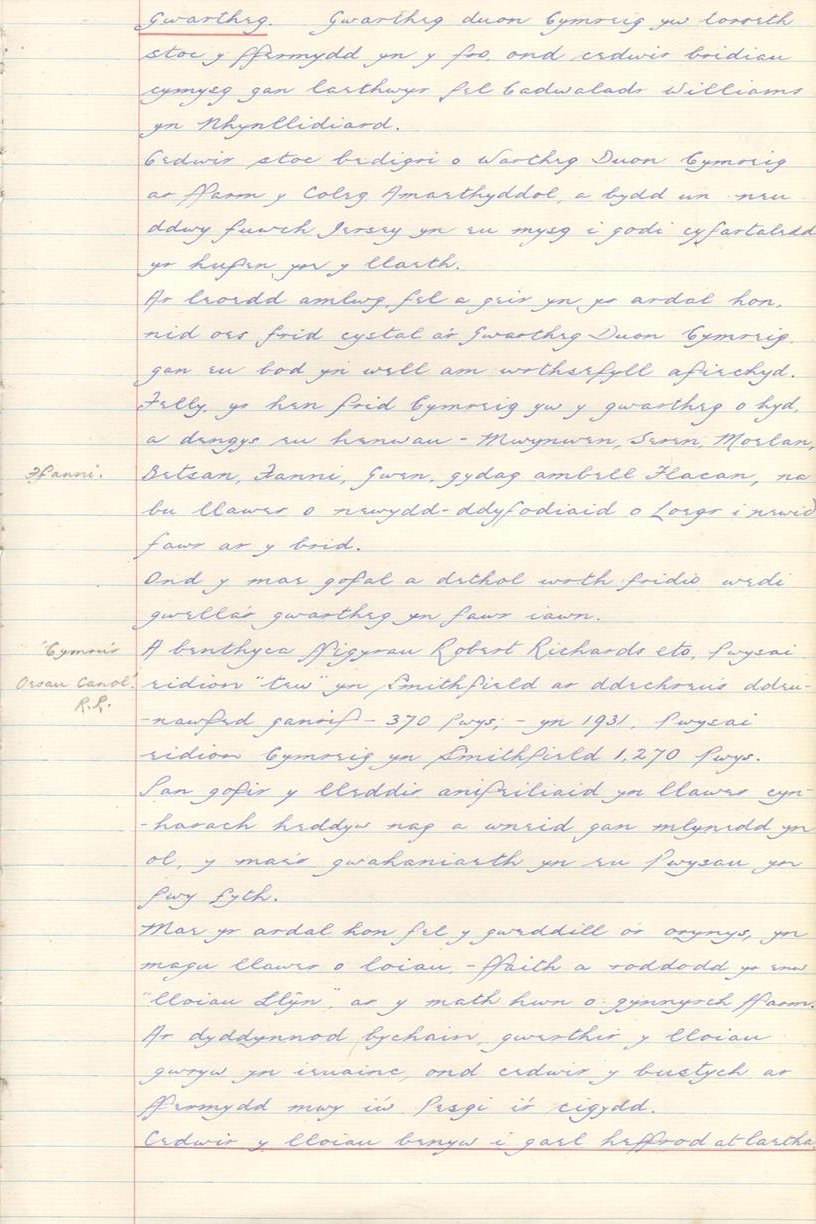 Gwartheg. Gwartheg duon Cymreig yw toreth
stoc y ffermydd yn y fro, ond cedwir bridiau
cymysg gan laethwyr fel Cadwaladr Williams
yn Rhynllidiard.
Cedwir stoc bedigri o Wartheg Duon Cymreig
ar ffarm y Coleg Amaethyddol, a bydd un neu
ddwy fuwch Jersey yn eu mysg i godi cyfartaledd
yr hufen yn y llaeth.
Ar leoedd amlwg, fel a geir yn yr ardal hon,
nid oes frid cystal a'r Gwartheg Duon Cymreig,
gan eu bod yn well am wrthsefyll afiechyd.
Felly, yr hen frid Cymreig yw y gwartheg o hyd,
a dengys eu henwau - Mwynwen, Seren, Morlan,
Ffanni.
Betsan, Fanni, Gwen, gydag ambell Flacan, na
bu llawer o newydd-ddyfodiaid o Loegr i newid
fawr ar y brid.
Ond y mae gofal a dethol wrth fridio wedi
gwella'r gwartheg yn fawr iawn.
"Cymru'r
A benthyca ffigyrau Robert Richards eto, pwysai
Oesau Canol"
eidion "tew" yn Smithfield ar ddechreu'r ddeu-
R.R.
-nawfed ganrif - 370 pwys; - yn 1931, pwysai
eidion Cymreig yn Smithfield 1,270 pwys.
Pan gofir y lleddir anifeiliaid yn llawer cyn-
-harach heddyw nag a wneid gan mlynedd yn
ol, y mae'r gwahaniaeth yn eu pwysau yn
fwy fyth.
Mae yr ardal hon fel y gweddill o'r orynys, yn
magu llawer o loiau, - ffaith a roddodd yr enw
"lloiau Llŷn" ar y math hwn o gynnyrch ffarm.
Ar dyddynnod bychain, gwerthir y lloiau
gwryw yn ieuainc, ond cedwir y bustych ar
ffermydd mwy i'w pesgi i'r cigydd.
Cedwir y lloiau benyw i gael heffrod at laetha